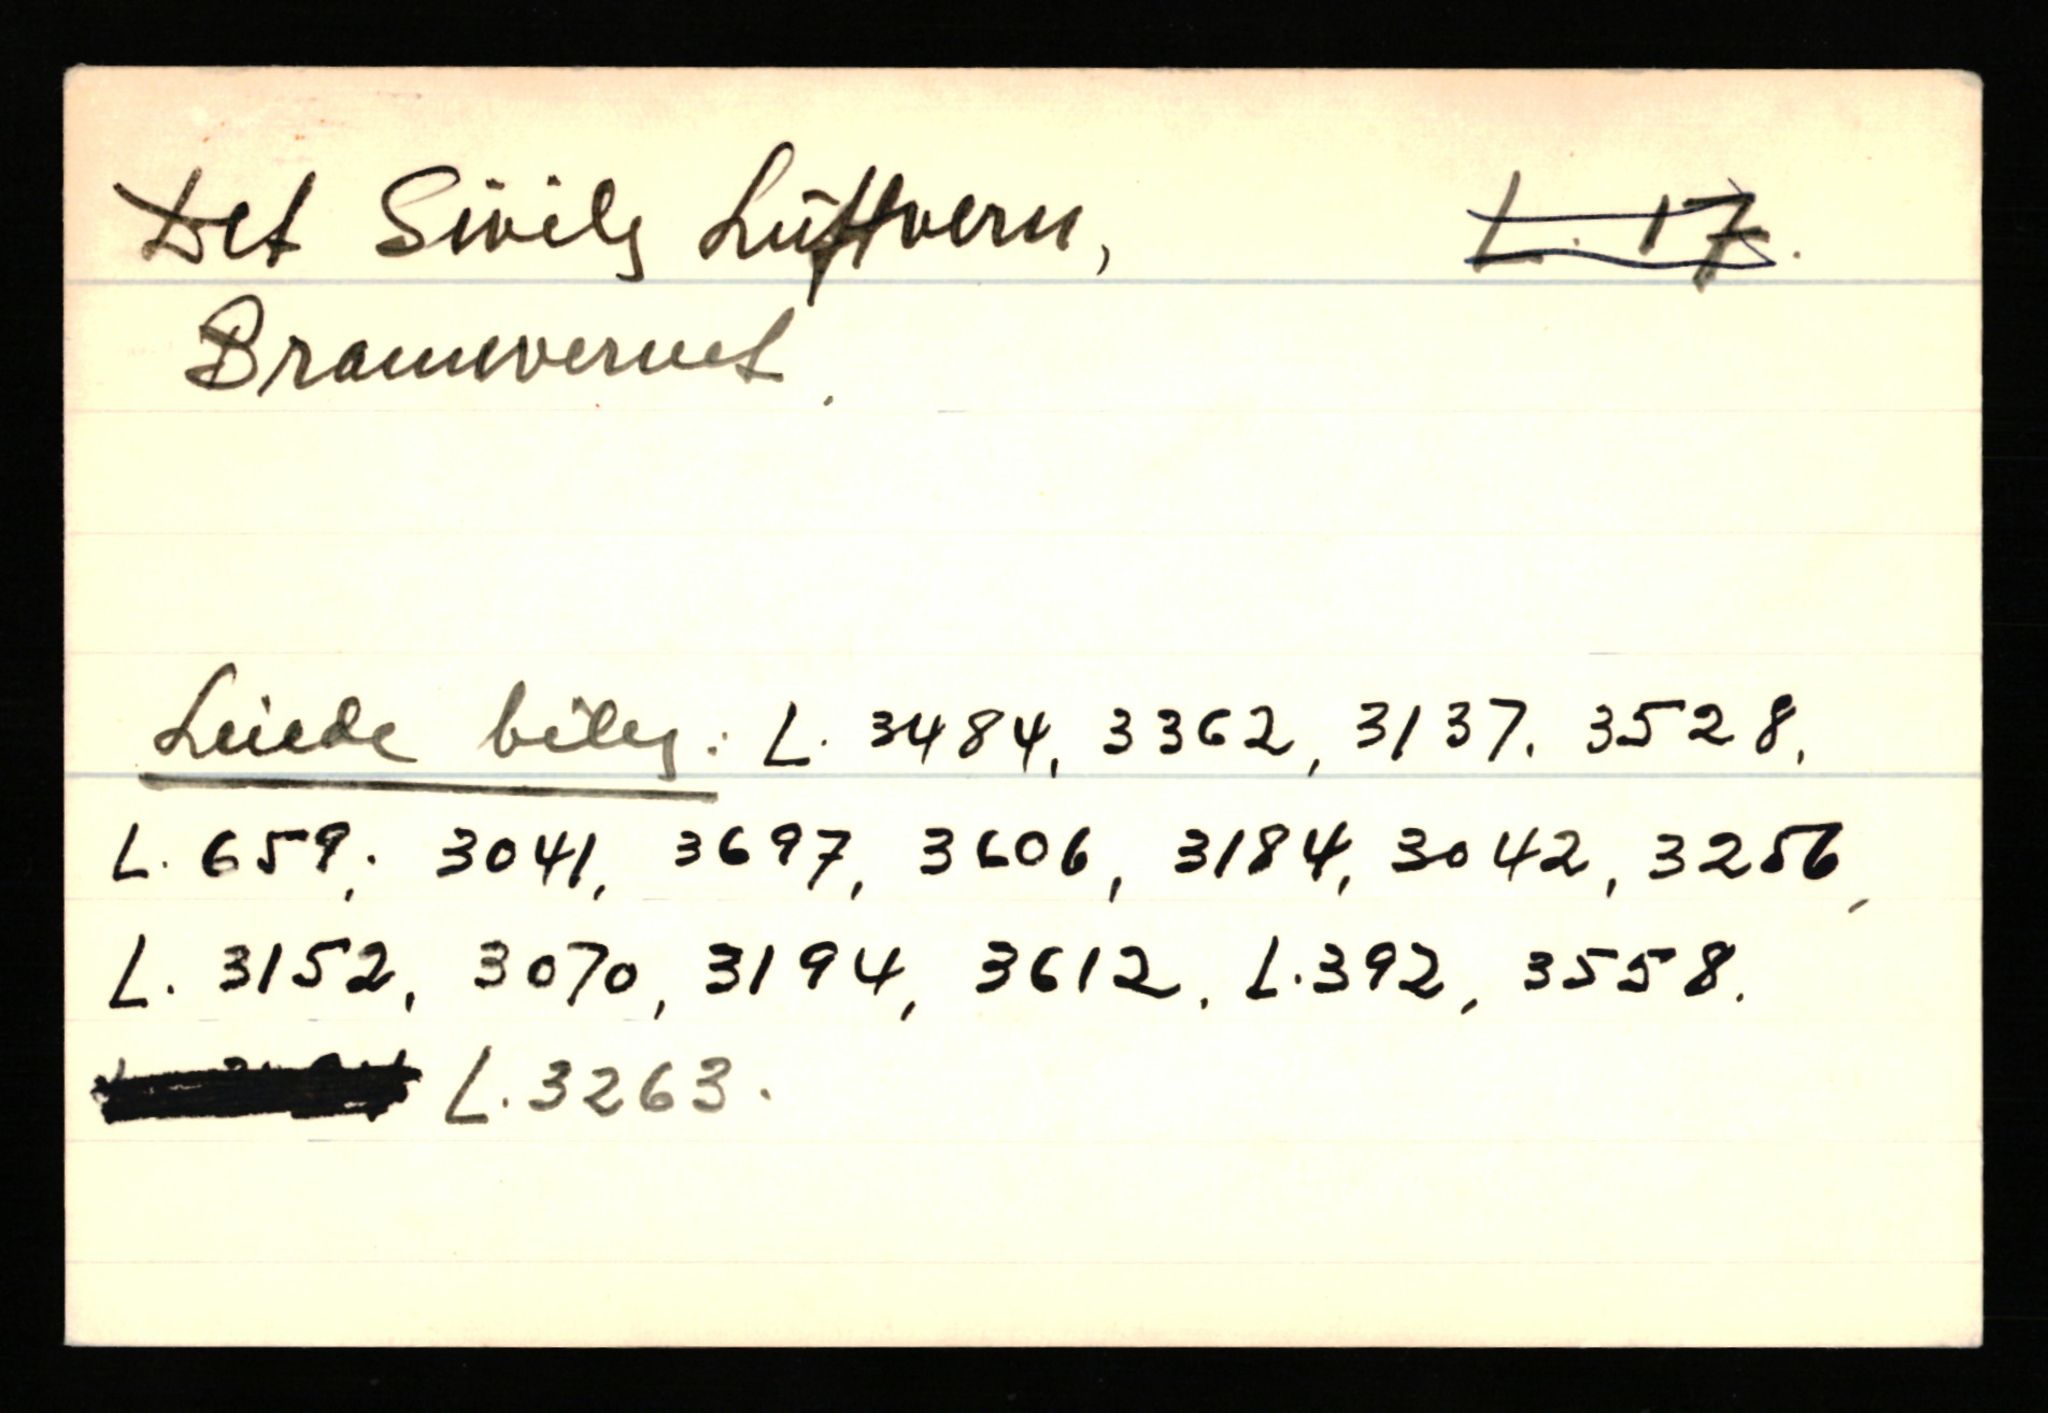 Det Sivile Luftvern, L. 17.
Brannvernet.
Leiede biler: L. 3484, 3362, 3137, 3528,
L. 659, 3041, 3697, 3606, 3184, 3042, 3256,
L. 3152, 3070, 3194, 3612, L.392, 3558.
L.3263.